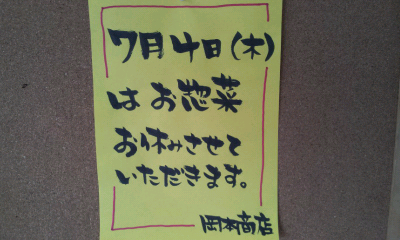 7月4日(木)
はお惣菜
お休みさせて
いただきます。
岡村商店